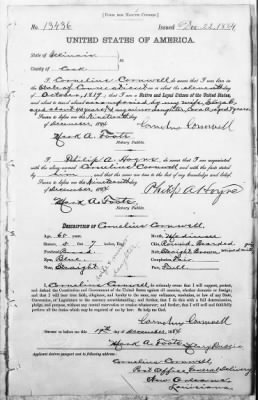 [FORM FOR NATIVE CITIZEN.]
No. 13436 Issued Dec. 22. 1884
UNITED STATES OF AMERICA.
State of Illinois
County of Cook
I, Cornelius Cornwell, do swear that I was born in the
State of Connecticut on or about the
day of October, 1819; that I am a Native and Loyal Citizen of the United States,
and about to travel abroad, accompanied by my wife,
aged years
Sworn to before me this Nineteenth day
of December, 1884
Cornelius Cornwell
Mark A. Foote
Notary Public.
I, Philip A Hoyne, do swear that I am acquainted
with the above named Cornelius Cornwell, and with the facts stated
by him, and that the same are true to the best of my knowledge and belief.
Sworn to before me this Nineteenth day
of December, 1884
Philip A Hoyne
Mark A. Foote
Notary Public.
DESCRIPTION OF Cornelius Cornwell.
Age, 65 years Mouth, Medium
Stature, 5 feet 7 inches, Eng. Chin, Round Bearded
Forehead, Broad Hair, Brown
Eyes, Blue Complexion, Fair
Nose, Straight Face, Full
wife & minor daughter
I, Cornelius Cornwell, do solemnly swear that I will support, protect,
and defend the Constitution and Government of the United States against all enemies, whether domestic or foreign;
and that I will bear true faith, allegiance, and loyalty to the same, any ordinance, resolution, or law of any State,
Convention, or Legislature to the contrary notwithstanding; and further, that I do this with a full determination,
pledge, and purpose, without any mental reservation or evasion whatsoever; and further, that I will well and faithfully perform
all the duties which may be required of me by law: So help me God.
Cornelius Cornwell
Sworn to before me this 19th day of December 1884
Mark A. Foote Notary Public
Applicant desires passport sent to following address:
Cornelius Cornwell
Post Office General Delivery
New Orleans
Louisiana.